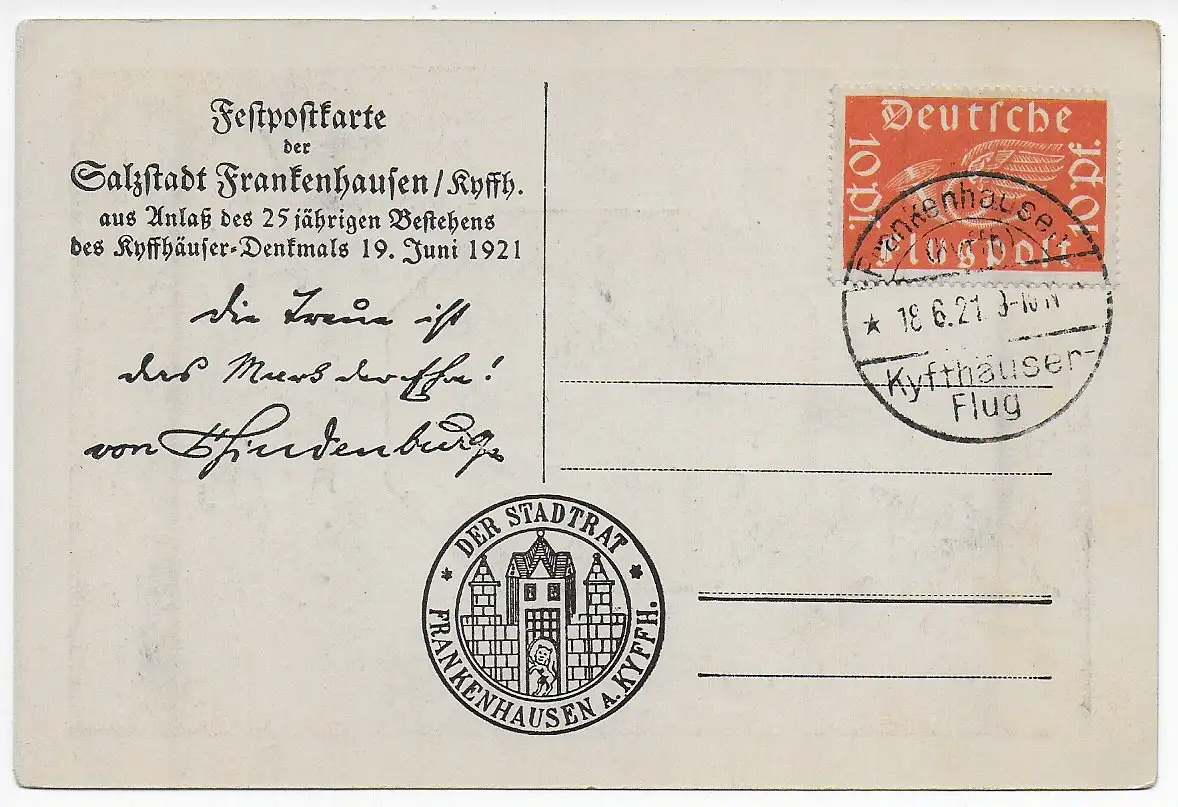 Festpostkarte
der
Salzstadt Frankenhausen/Kyffh.
aus Anlaß des 25 jährigen Bestehens
des Kyffhäuser-Denkmals 19. Juni 1921
Die Treue ist
das Mark der Ehre!
von Hindenburg
Deutsche
10 Pf.
10 Pf.
Flugpost
Frankenhausen
(Kyffh)
* 18.6.21. 9-10 N
Kyffhäuser-
Flug
* DER STADTRAT *
FRANKENHAUSEN A. KYFFH.